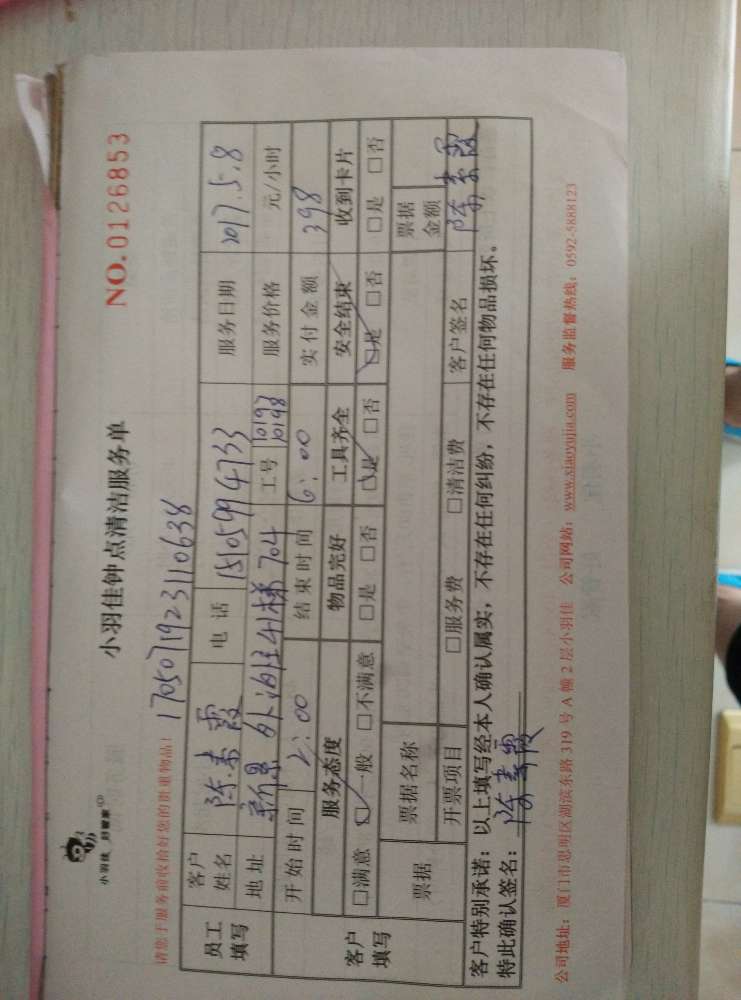 小羽佳 好管家
小羽佳钟点清洁服务单
NO.0126853
请您于服务前收拾好您的贵重物品!
1705071923110638
员工填写
客户姓名 陈素霞 电话 15105994733 服务日期 2017.5.8
地址 新景 外滩 41梯704 工号 10197 10198 服务价格 元/小时
开始时间 2:00 结束时间 6:00 实付金额 398
客户填写
服务态度 物品完好 工具齐全 安全结束 收到卡片
□满意 □一般 □不满意 □是 □否 □是 □否 □是 □否 □是 □否
票据 票据名称 票据金额
开票项目 □服务费 □清洁费 客户签名 陈素霞
客户特别承诺:以上填写经本人确认属实,不存在任何纠纷,不存在任何物品损坏。
特此确认签名: 陈素霞
公司地址:厦门市思明区湖滨东路319号A幢2层小羽佳 公司网站:www.xiaoyujia.com 服务监督热线:0592-5888123